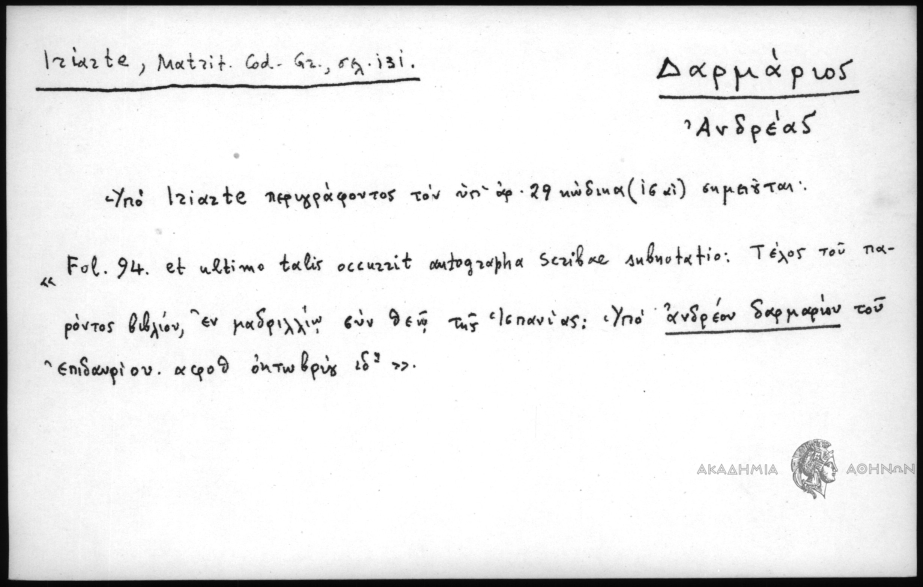 Iriarte, Matrit. Cod. Gr., σελ. 131.
Δαρμάριος
Ἀνδρέας
Ὑπὸ Iriarte περιγράφοντος τὸν ὑπ' ἀρ. 29 κώδικα (ις αἰ) σημειοῦται:
« Fol. 94. et ultimo talis occurrit autographa Scribae subnotatio: Τέλος τοῦ πα-
ρόντος βιβλίου, ἐν μαδριλλίῳ σὺν θεῷ τῆς Ἱσπανίας: Ὑπὸ ἀνδρέου δαρμαρίου τοῦ
ἐπιδαυρίου. αφοθ ὀκτωβρίῳ ιδῃ ».
ΑΚΑΔΗΜΙΑ ΑΘΗΝΩΝ